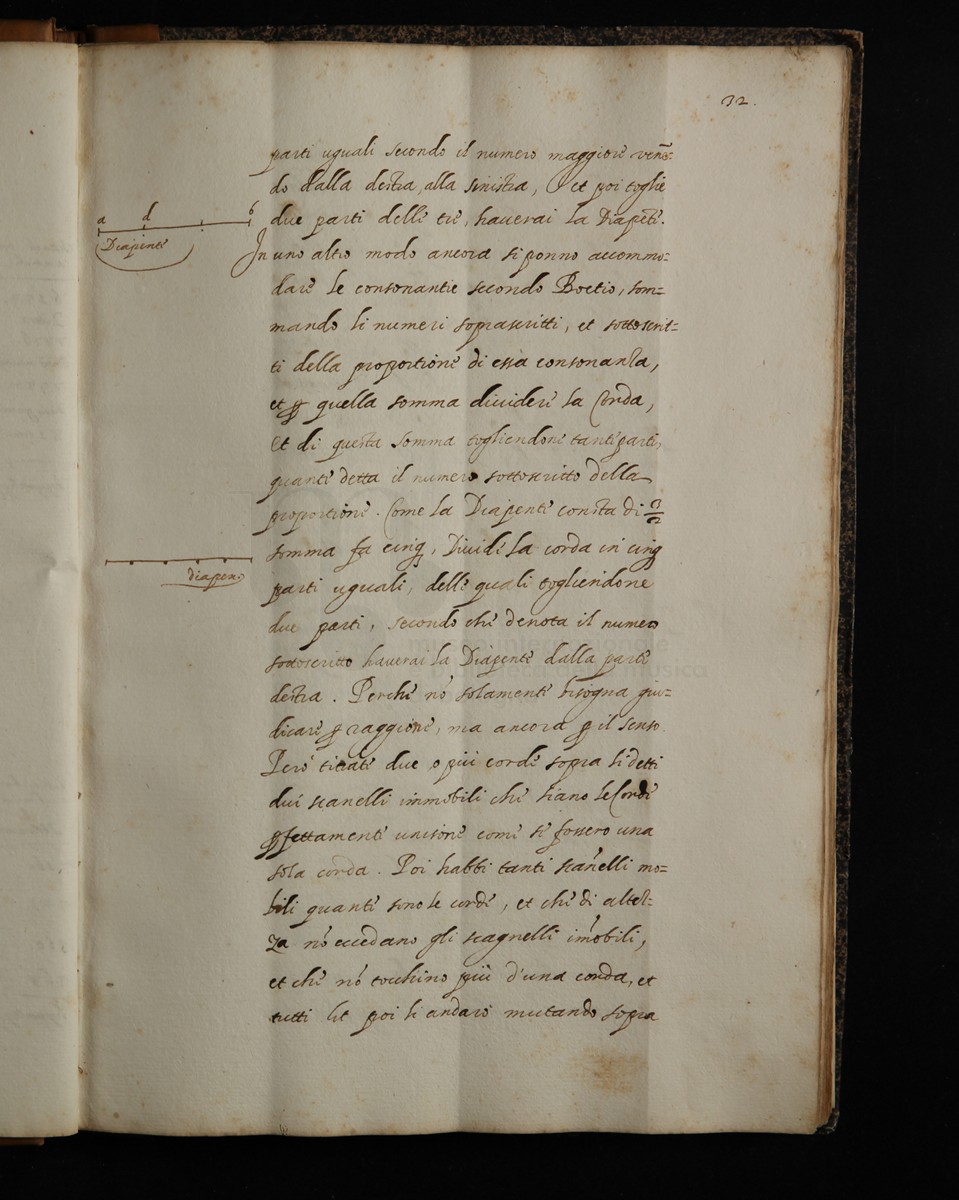 32.
parti uguali secondo il numero maggiore venē=
do dalla destra, alla sinistra, et poi toglie
a d b
due parti delle tre, haverai la Diapēte.
Diapente
In uno altro modo ancora si ponno accommo=
dare le consonantie secondo Boetio, som=
mando li numeri soprascritti, et sottoscrit=
ti della proportione di essa consonanza,
et ꝑ quella somma dividere la Corda,
Et di questa somma togliendone tante parti,
quante detta il numero sottoscritto della
proportione. Come la Diapente consta di 3/2
somma fa cinq, Divide la corda in cinq
diapen
parti uguali, delle quali togliendone
due parti, secondo che denota il numero
sottoscritto haverai la Diapente dalla parte
destra. Perche nō solamente bisogna giu=
dicare ꝑ raggione, ma ancora ꝑ il senso
Però tirate due o più corde sopra li detti
dui scanelli immobili che siano le Corde
ꝑfettamente unisone come se fossero una
sola corda. Poi habbi tanti scanelli mo=
bili quante sono le corde, et che di altez=
za nō eccedano gli scagnelli imobili,
et che nō tocchino più d'una corda, et
tutti poi li andarò mutando sopra